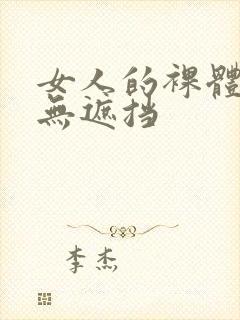 女人的裸體
無遮挡
李杰